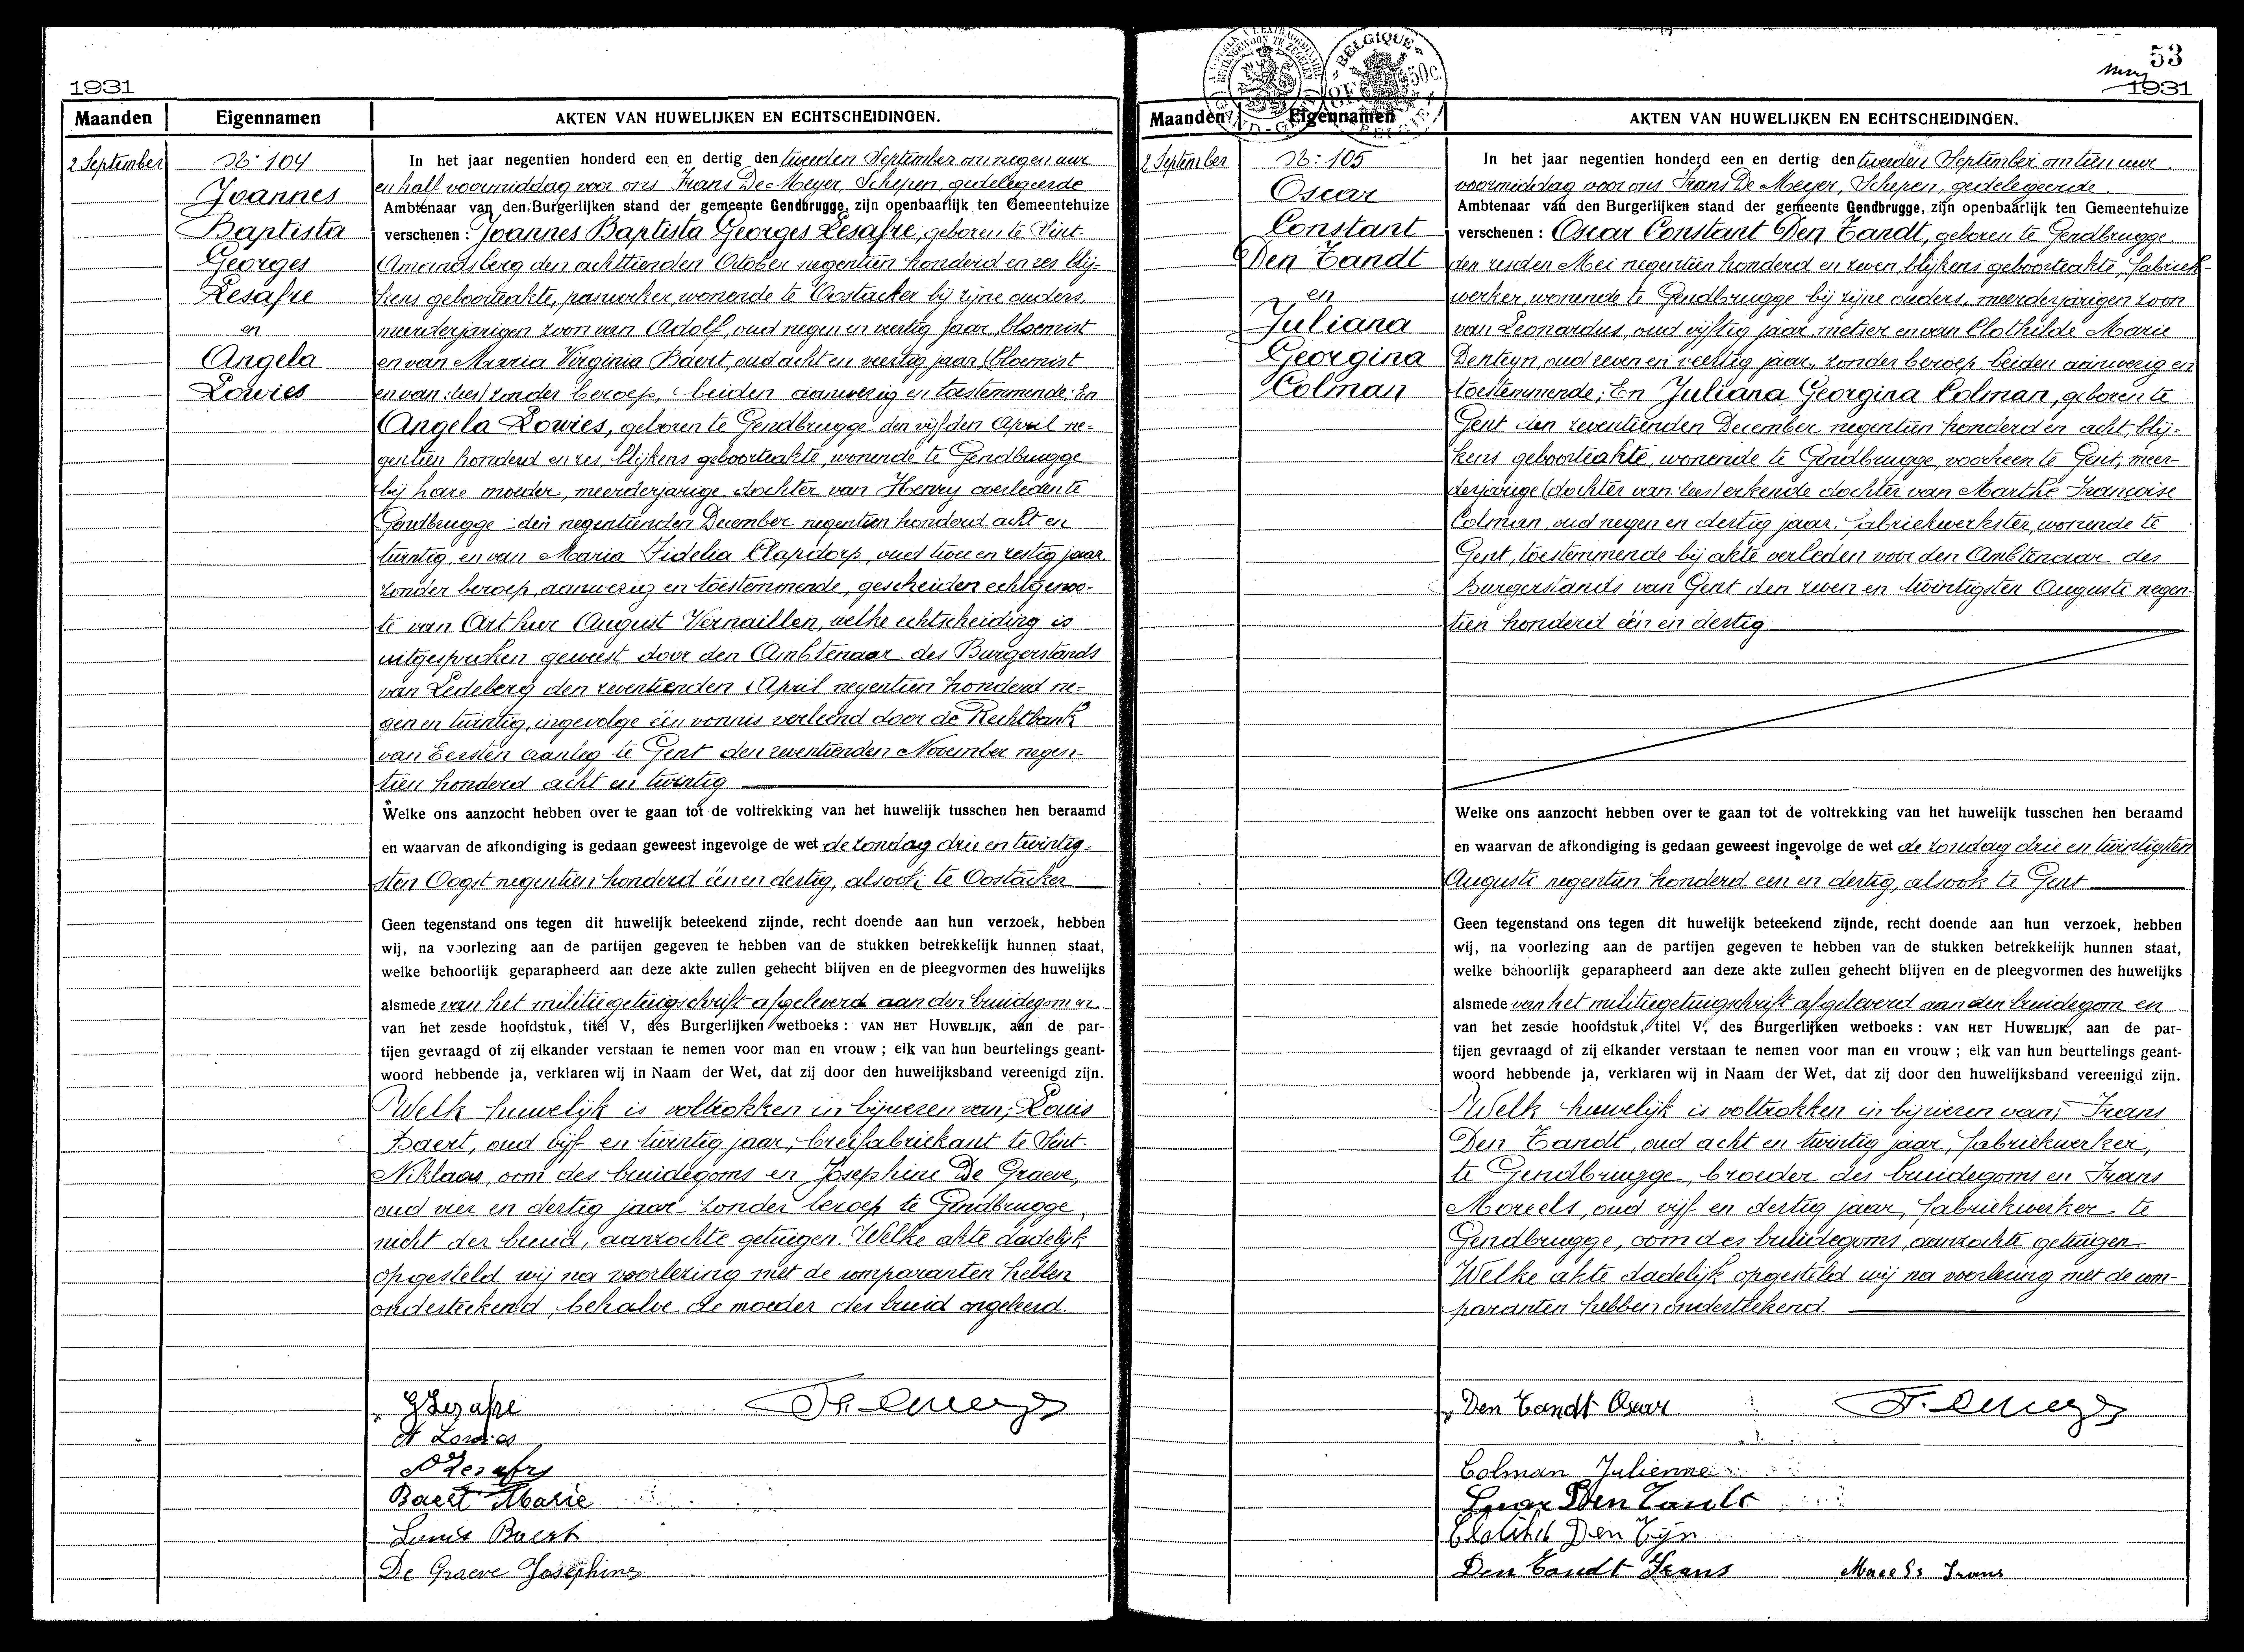 1931
Maanden Eigennamen AKTEN VAN HUWELIJKEN EN ECHTSCHEIDINGEN.
2 September
N: 104
Joannes
Baptista
Georges
Lesafre
en
Angela
Lowies
In het jaar negentien honderd een en dertig den tweeden September om negen uur
en half voormiddag voor ons Frans De Meyer, Schepen, gedelegeerde
Ambtenaar van den Burgerlijken stand der gemeente Gendbrugge, zijn openbaarlijk ten Gemeentehuize
verschenen: Joannes Baptista Georges Lesafre, geboren te Sint-
Amandsberg den achttienden October negentien honderd en zes blij-
kens geboorteakte, paswerker, wonende te Oostacker bij zijne ouders,
meerderjarigen zoon van Adolf, oud negen en veertig jaar, bloemist
en van Maria Virginia Baert, oud acht en veertig jaar, (bloemist
en van: lees) zonder beroep, beiden aanwezig en toestemmende; En
Angela Lowies, geboren te Gendbrugge den vijfden April ne-
gentien honderd en zes, blijkens geboorteakte, wonende te Gendbrugge
bij hare moeder, meerderjarige dochter van Henry overleden te
Gendbrugge den negentienden December negentien honderd acht en
twintig, en van Maria Fidelia Clapdorp, oud twee en zestig jaar,
zonder beroep, aanwezig en toestemmende, gescheiden echtgenoo-
te van Arthur August Vernaillen, welke echtscheiding is
uitgesproken geweest door den Ambtenaar des Burgerstands
van Ledeberg den zeventienden April negentien honderd ne-
gen en twintig, ingevolge één vonnis verleend door de Rechtbank
van Eersten aanleg te Gent den zeventienden November negen-
tien honderd acht en twintig
Welke ons aanzocht hebben over te gaan tot de voltrekking van het huwelijk tusschen hen beraamd
en waarvan de afkondiging is gedaan geweest ingevolge de wet de zondag drie en twintig-
sten Oogst negentien honderd één en dertig, alsook te Oostacker
Geen tegenstand ons tegen dit huwelijk beteekend zijnde, recht doende aan hun verzoek, hebben
wij, na voorlezing aan de partijen gegeven te hebben van de stukken betrekkelijk hunnen staat,
welke behoorlijk geparapheerd aan deze akte zullen gehecht blijven en de pleegvormen des huwelijks
alsmede van het militiegetuigschrift afgeleverd aan den bruidegom en
van het zesde hoofdstuk, titel V, des Burgerlijken wetboeks: VAN HET HUWELIJK, aan de par-
tijen gevraagd of zij elkander verstaan te nemen voor man en vrouw; elk van hun beurtelings geant-
woord hebbende ja, verklaren wij in Naam der Wet, dat zij door den huwelijksband vereenigd zijn.
Welk huwelijk is voltrokken in bijwezen van; Louis
Baert, oud vijf en twintig jaar, breifabriekant te Sint-
Niklaas, oom des bruidegoms en Josephine De Graeve,
oud vier en dertig jaar zonder beroep te Gendbrugge,
nicht der bruid, aanzochte getuigen. Welke akte dadelijk
opgesteld wij na voorlezing met de comparanten hebben
onderteekend, behalve de moeder der bruid ongeleerd.
G Lesafre
A Lowies
A Lesafre
Baert Marie
Louis Baert
De Graeve Josephine
53
1931
BELGIQUE
50c
BELGIË
Maanden Eigennamen AKTEN VAN HUWELIJKEN EN ECHTSCHEIDINGEN.
2 September
N: 105
Oscar
Constant
Den Tandt
en
Juliana
Georgina
Colman
In het jaar negentien honderd een en dertig den tweeden September om tien uur
voormiddag voor ons Frans De Meyer, Schepen, gedelegeerde
Ambtenaar van den Burgerlijken stand der gemeente Gendbrugge, zijn openbaarlijk ten Gemeentehuize
verschenen: Oscar Constant Den Tandt, geboren te Gendbrugge
den zesden Mei negentien honderd en zeven blijkens geboorteakte, fabriek-
werker, wonende te Gendbrugge bij zijne ouders, meerderjarigen zoon
van Leonardus, oud vijftig jaar, metser en van Clothilde Marie
Denteyn, oud zeven en veertig jaar, zonder beroep beiden aanwezig en
toestemmende; En Juliana Georgina Colman, geboren te
Gent den zeventienden December negentien honderd en acht, blij-
kens geboorteakte, wonende te Gendbrugge, voorheen te Gent, meer-
derjarige (dochter van: lees) erkende dochter van Marthe Françoise
Colman, oud negen en dertig jaar, fabriekwerkster, wonende te
Gent, toestemmende bij akte verleden voor den Ambtenaar des
Burgerstands van Gent den zeven en twintigsten Augusti negen-
tien honderd één en dertig
Welke ons aanzocht hebben over te gaan tot de voltrekking van het huwelijk tusschen hen beraamd
en waarvan de afkondiging is gedaan geweest ingevolge de wet de zondag drie en twintigsten
Augusti negentien honderd een en dertig, alsook te Gent
Geen tegenstand ons tegen dit huwelijk beteekend zijnde, recht doende aan hun verzoek, hebben
wij, na voorlezing aan de partijen gegeven te hebben van de stukken betrekkelijk hunnen staat,
welke behoorlijk geparapheerd aan deze akte zullen gehecht blijven en de pleegvormen des huwelijks
alsmede van het militiegetuigschrift afgeleverd aan den bruidegom en
van het zesde hoofdstuk, titel V, des Burgerlijken wetboeks: VAN HET HUWELIJK, aan de par-
tijen gevraagd of zij elkander verstaan te nemen voor man en vrouw; elk van hun beurtelings geant-
woord hebbende ja, verklaren wij in Naam der Wet, dat zij door den huwelijksband vereenigd zijn.
Welk huwelijk is voltrokken in bijwezen van; Frans
Den Tandt, oud acht en twintig jaar, fabriekwerker,
te Gendbrugge, broeder des bruidegoms en Frans
Moreels, oud vijf en dertig jaar, fabriekwerker te
Gendbrugge, oom des bruidegoms, aanzochte getuigen
Welke akte dadelijk opgesteld wij na voorlezing met de com-
paranten hebben onderteekend.
Den Tandt Oscar
Colman Julienne
Den Tandt
Den Tijn
Den Tandt Frans Frans